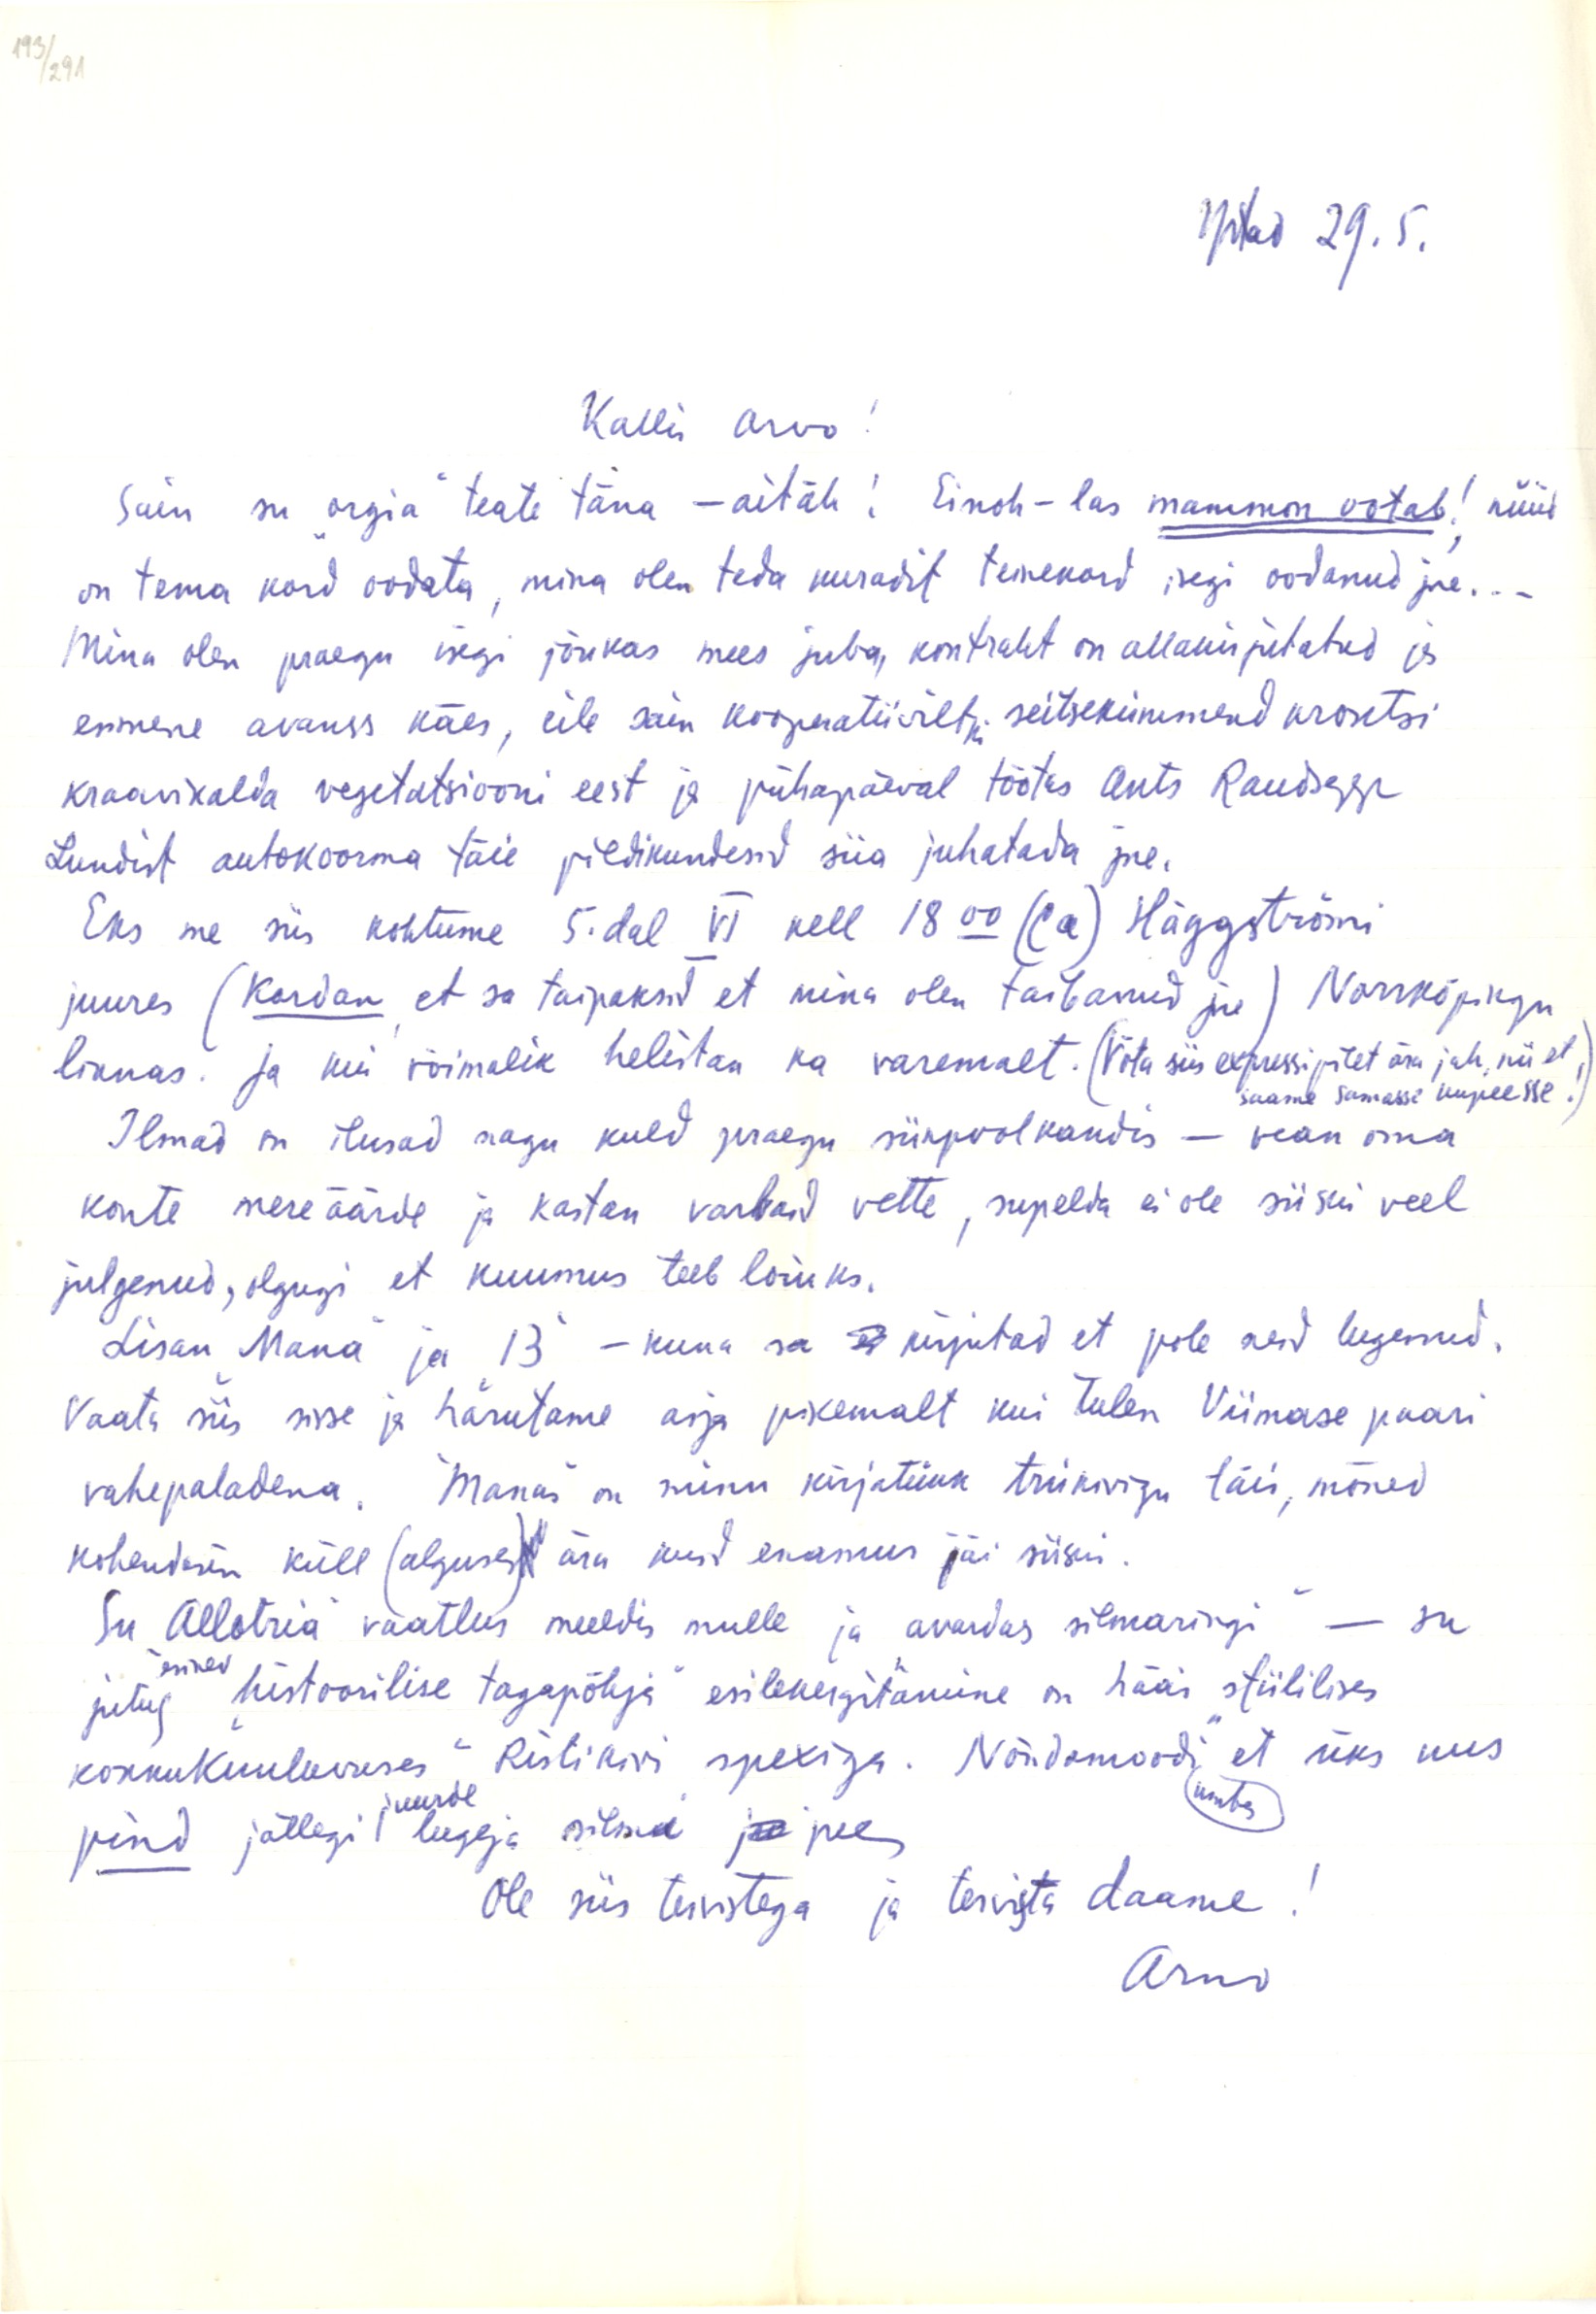 193/291
Ystad 29.5.
Kallis Arvo!
Sain su „orgia“ teate täna – aitäh! Einoh – las mammon ootab!, nüüd
on tema kord oodata, mina olen teda kuradit teinekord isegi oodanud jne...
Mina olen praegu isegi jõukas mees juba, kontraht on allakirjutatud ja
esimene avanss käes, eile sain kooperatiiviltki seitsekümmend krontsi
kraavikalda vegetatsiooni eest ja pühapäeval töötas Ants Raudsepp
Lundist autokoorma täie pildikundesid siia juhatada jne.
Eks me siis kohtume 5.dal VI kell 18 00 (ca) Häggströmi
juures (Kordan, et sa taipaksid et mina olen taibanud jne) Norrköpingu
linnas. Ja kui võimalik helistan ka varemalt. (Võta siis expressipilet ära jah, nii et
saame samasse kupeesse!)
Ilmad on ilusad nagu kuld praegu siinpoolkandis – vean oma
konte mereäärde ja kastan varbaid vette, supelda ei ole siiski veel
julgenud, olgugi et kuumus teeb loiuks.
Lisan „Mana“ ja „13“ – kuna sa kirjutad et pole neid lugenud.
Vaata siis sisse ja harutame asja pikemalt kui tulen Viimase paari
vahepaladena. "Manas" on minu kirjatükk trükivigu täis, mõned
kohendasin küll (alguses) ära kuid enamus jäi siiski.
Su „Allotria“ vaatlus meeldis mulle ja „avardas silmaringi“ – su
jutus esinev „histoorilise tagapõhja“ esilekergitamine on hääs stiililises
„kokkukuuluvuses“ Ristikivi spexiga. Nõndamoodi umbes et üks uus
pind jällegi juurde lugeja silma pee
Ole siis tervistega ja tervista daame!
Arno